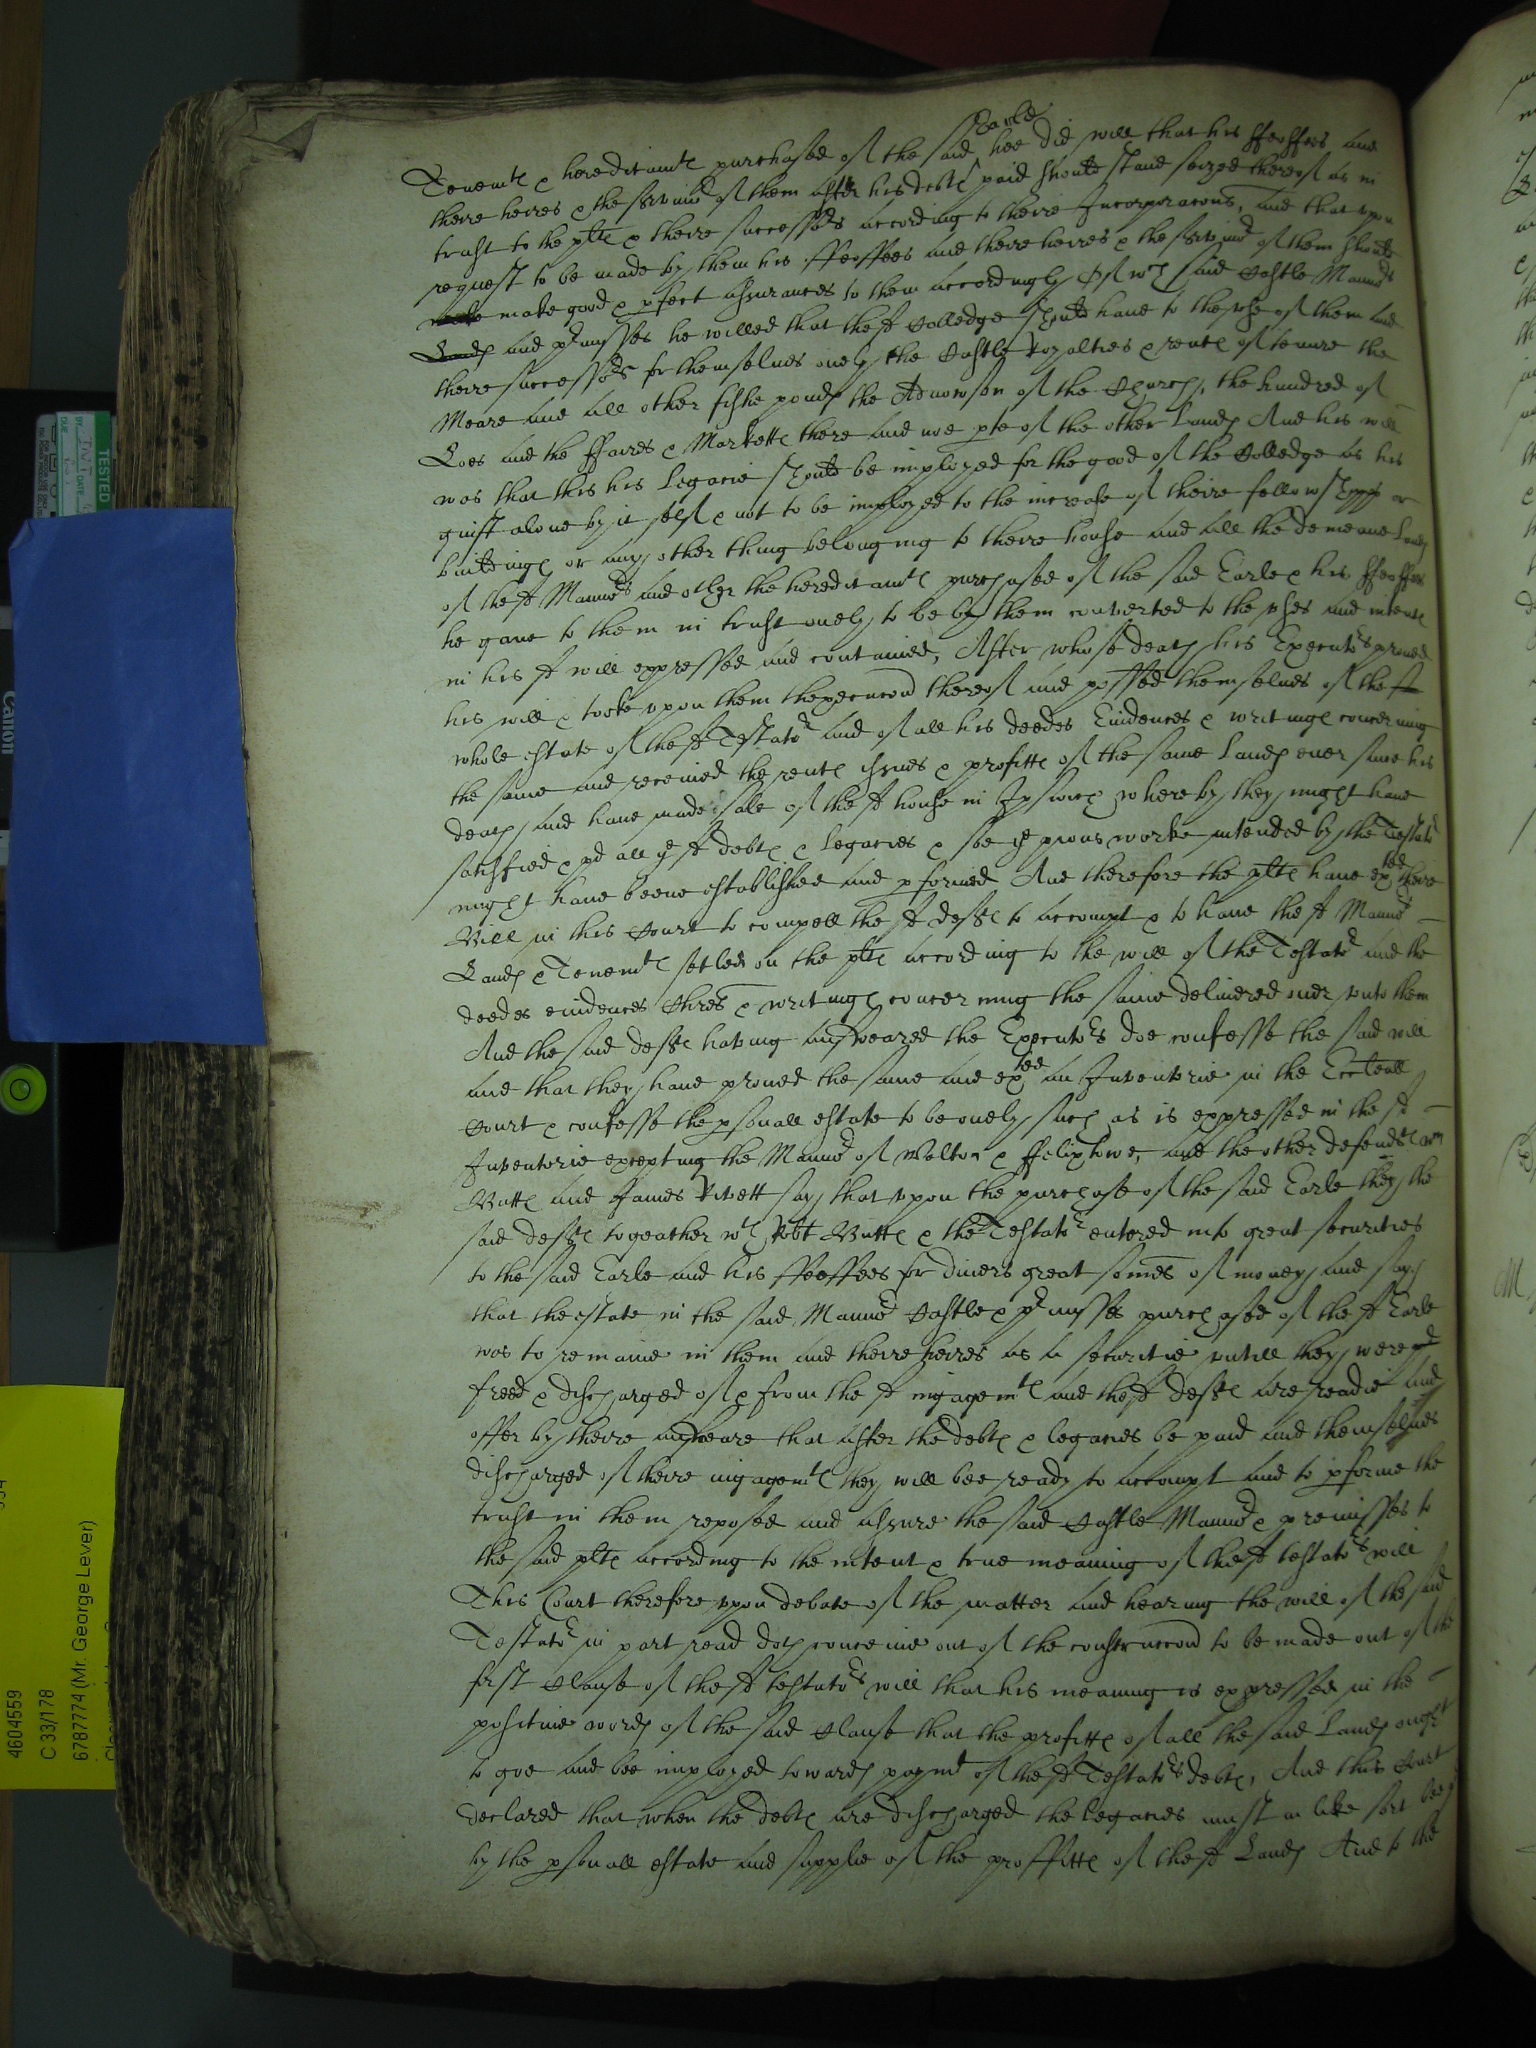 Tenemtes & hereditamtes purchased of the said Earle hee did will that his ffeoffees and
theire heires & the Survivor of them after his debtes paid should stand seized thereof as in
trust to the pltes & theire Successors according to theire Incorporacons, and that upon
request to be made by them his ffeoffees and theire heires & the Survivor of them should
make make good & pfect assurances to them accordingly Of wch said Castle Mannors
Landes and pʳmisses he willed that the sd Colledge should have to the use of them and
theire successors for themselves onely the Castle Royalties & rentes of tenure the
Meare and all other fishe pondes the Advowson of the Church, the hundred of
Loes and the ffaires & Markettes there and noe pte of the other Landes And his will
was that this his Legacie should be imployed for the good of the Colledge as his
guift alone by it self & not to be imployed to the increase of theire fellowshipps or
buildinges or any other thing belonging to theire house and all the demeane Landes
of the sd Mannors and other the hereditamtes purchased of the said Earle & his ffeoffees
he gave to them in trust onely to be by them converted to the uses and intentes
in his sd will expressed and contained, After whose death his Executors proved
his will & tooke upon them thexecucon thereof and possessed themselves of the sd
whole estate of the sd Testator and of all his deedes Evidences & writinges concerning
the same and received the rentes issues & profittes of the same Landes ever since his
death and have made sale of the sd house in Ipswich whereby they might have
satisfied & pd all ye sd debtes & legacies & soe ye pious worke intended by the Testator
might have beene established and pformed And therefore the pltes have exted theire
Bill in this Court to compell the sd deftes to accompt & to have the sd Mannors
Landes & Tenemtes setled on the pltes according to the will of the Testator and the
deedes evidences Chres & writinges concerning the same delivered over unto them
And the said deftes having answeared the Executors doe confesse the said will
and that they have proved the same and exted an Inventorie in the Eccleall
Court & confesse the psonall estate to be onely such as is expressed in the sd
Inventorie excepting the Mannor of Walton & ffelixtowe, and the other defendtes Wm
Buttes and James Rivett say that upon the purchase of the said Earle they the
said deftes togeather wth Robt Buttes & the Testator entered into great securities
to the said Earle and his ffeoffees for divers great somes of money and say
that the estate in the said Mannor Castle & pʳmisses purchased of the sd Earle
was to remaine in them and theire heires as a securitie untill they were
freed & discharged of & from the sd ingagemtes and the sd deftes are readie and
offer by theire answeare that after the debtes & legacies be paid and themselves
discharged of theire ingagemtes they will bee ready to accompt and to pforme the
trust in them reposed and assure the said Castle Mannor & premisses to
the said pltes according to the intent & true meaning of the sd testators will
This Court therefore upon debate of the matter and hearing the will of the said
Testator in part read doth conceive out of the construccon to be made out of the
first Clause of the sd testators will that his meaning is expressed in the
positive wordes of the said Clause that the profittes of all the said Landes ought
to goe and bee imployed towardes paymt of the sd Testators debtes, And this Court
declared that when the debtes are discharged the legacies must in like sort bee
by the psonall estate and supplie of the proffittes of the sd Landes And to the
TESTED
DATE
DUE
Canon
4604559
C 33/178
6787774 (Mr. George Lever)